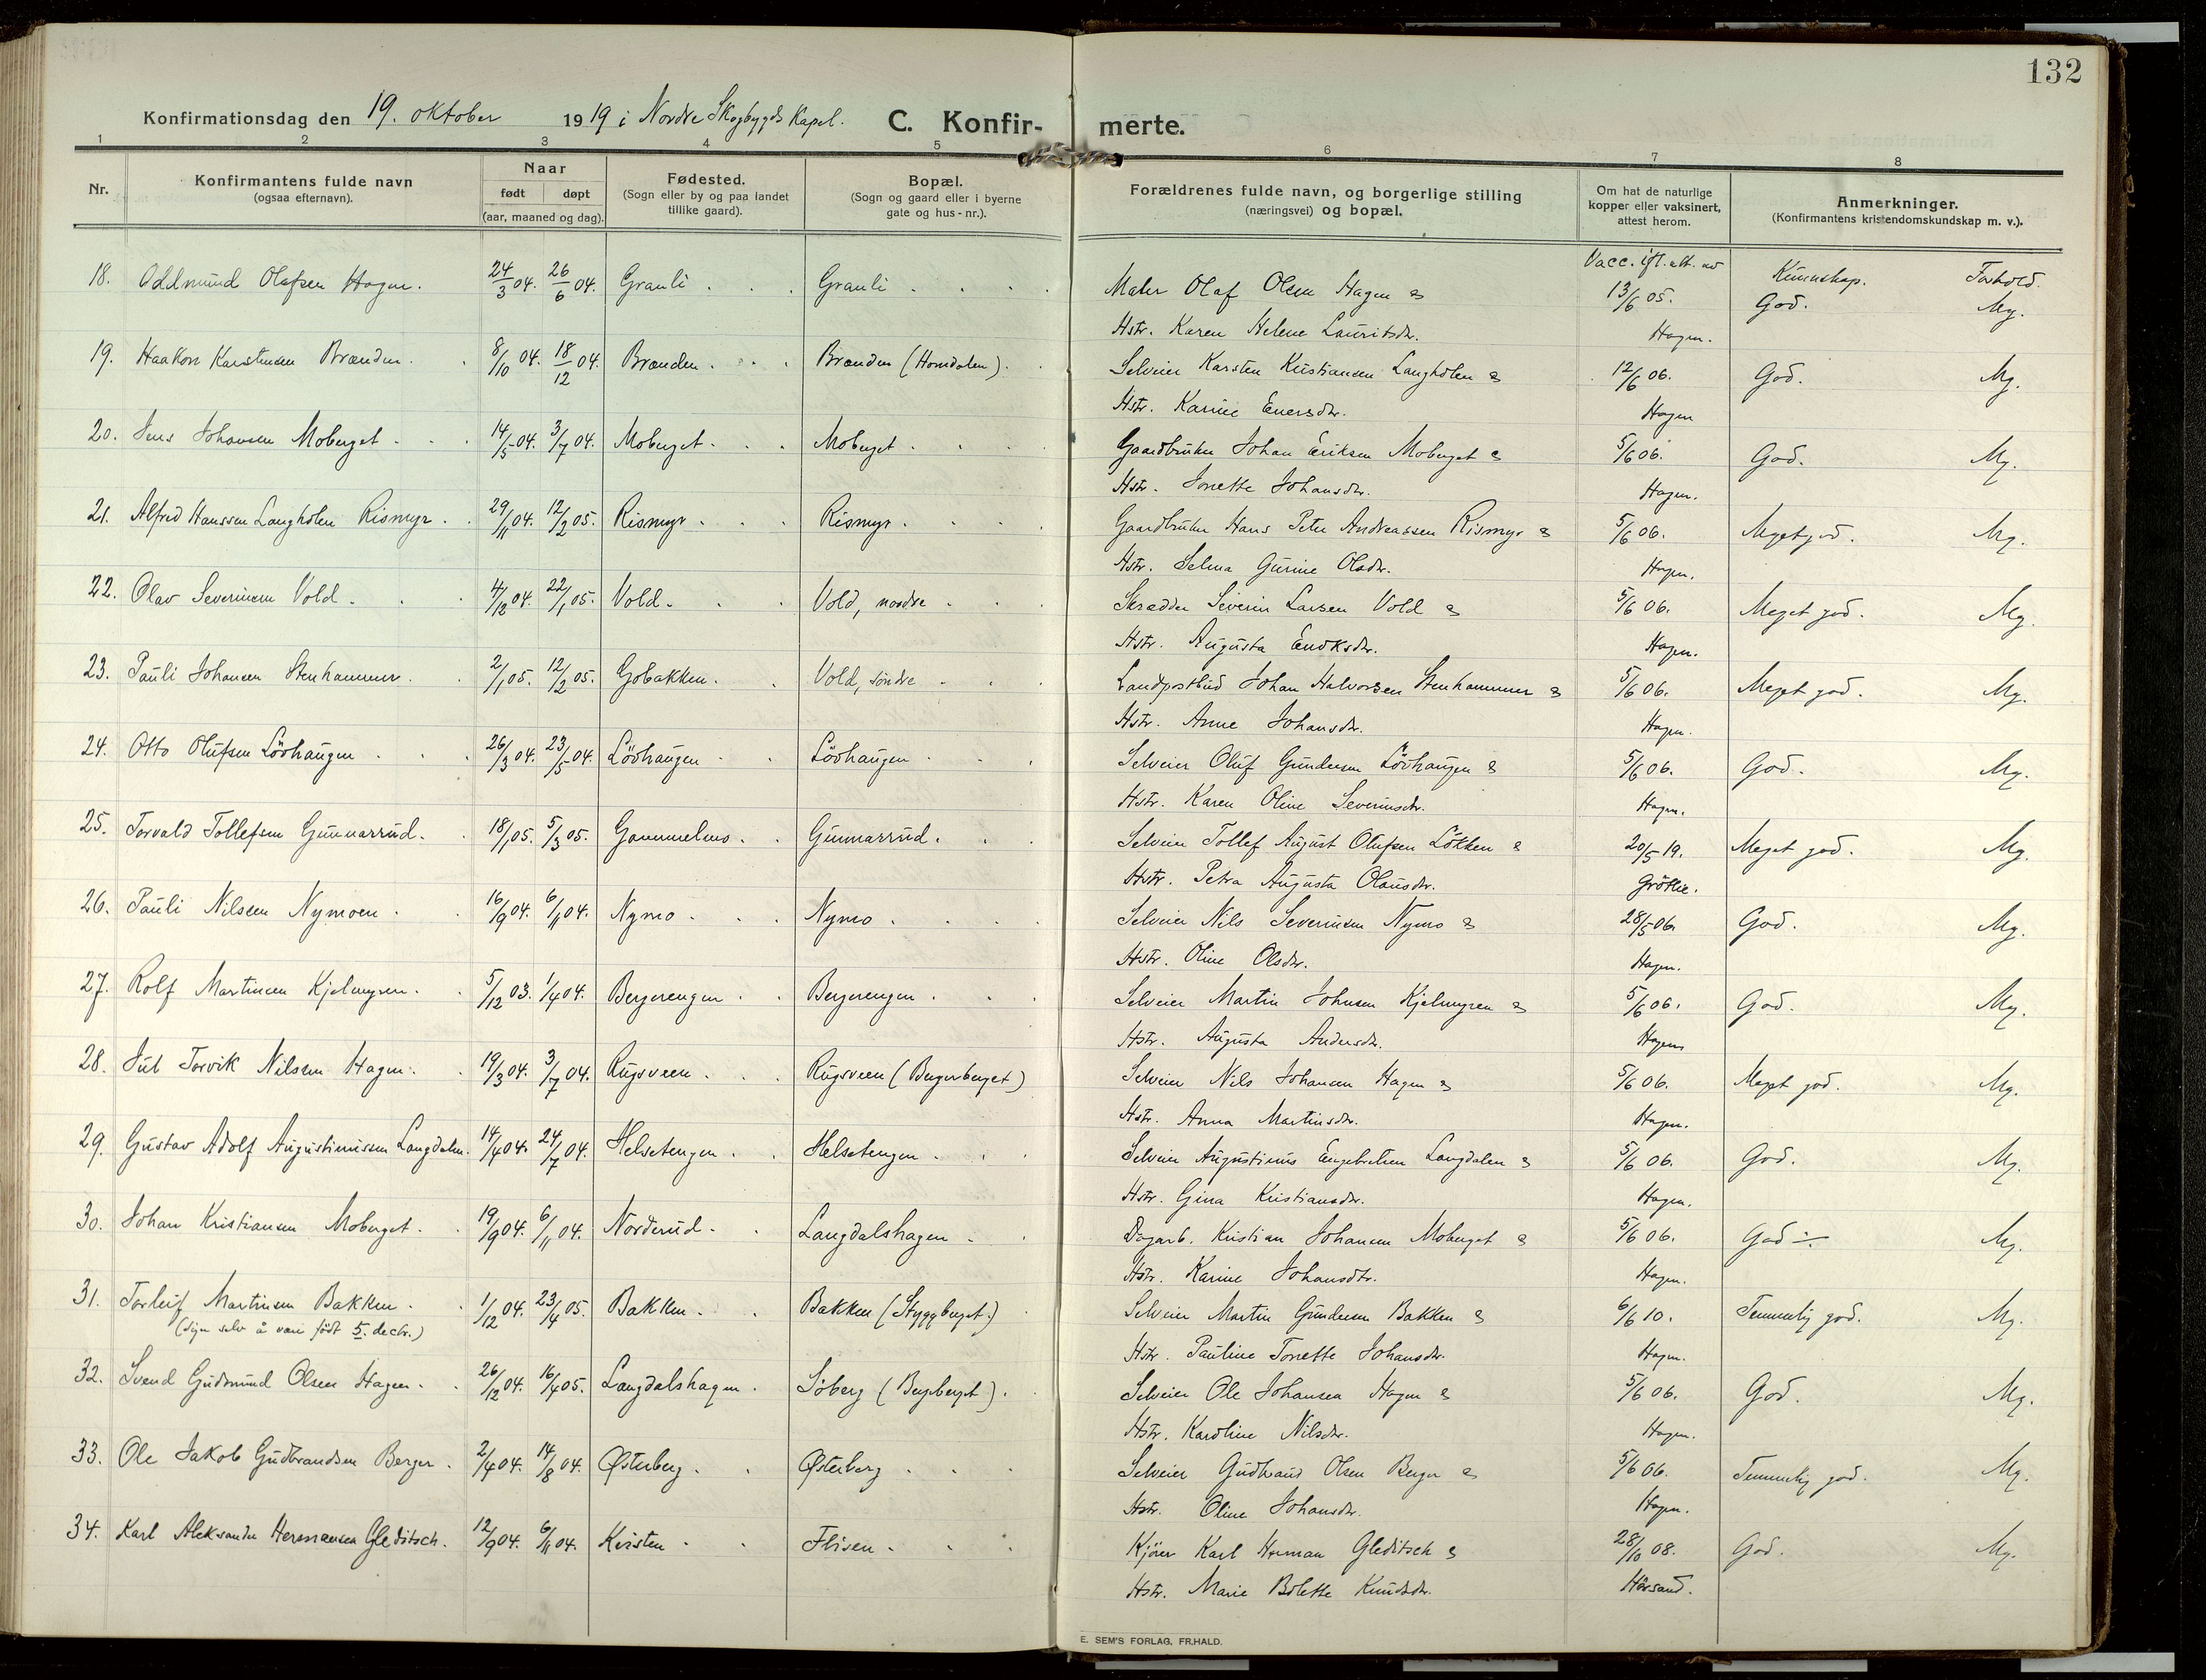 132
Konfirmationsdag den 19. oktober 1919 i Nordre Skogbygds Kapel. C. Konfir- merte.
1 2 3 4 5 6 7 8
Nr. Konfirmantens fulde navn (ogsaa efternavn). Naar født døpt (aar, maaned og dag). Fødested. (Sogn eller by og paa landet tillike gaard). Bopæl. (Sogn og gaard eller i byerne gate og hus-nr.). Forældrenes fulde navn, og borgerlige stilling (næringsvei) og bopæl. Om hat de naturlige kopper eller vaksinert, attest herom. Anmerkninger. (Konfirmantens kristendomskundskap m. v.).
Vacc. ifl. att. av Kunnskap. Forhold.
18. Oddmund Olafsen Hagen. 24/3 04. 26/6 04. Granli Granli Maler Olaf Olsen Hagen & 13/6 05. God. Mg.
Hstr. Karen Helene Lauritsdr. Hagen.
19. Haakon Karstensen Brænden. 8/10 04. 18/12 04. Brænden Brænden (Horndalen). Selveier Karsten Kristiansen Langholen & 12/6 06. God. Mg.
Hstr. Karine Enersdr. Hagen
20. Jens Johansen Moberget 14/5 04. 3/7 04. Moberget Moberget Gaardbruker Johan Eriksen Moberget & 5/6 06. God. Mg.
Hstr. Jonette Johansdr. Hagen.
21. Alfred Hanssen Langholen Rismyr 29/11 04. 12/2 05. Rismyr Rismyr Gaardbruker Hans Peter Andreassen Rismyr & 5/6 06. Meget god. Mg.
Hstr. Selma Gurine Olsdr. Hagen.
22. Olav Severinsen Vold 4/12 04. 22/1 05. Vold Vold, nordre Skrædder Severin Larsen Vold & 5/6 06. Meget god. Mg.
Hstr. Augusta Eriksdr. Hagen.
23. Pauli Johansen Stenhammer 2/1 05. 12/2 05. Gobakken Vold, söndre Landpostbud Johan Halvorsen Stenhammer & 5/6 06. Meget god. Mg.
Hstr. Anne Johansdr. Hagen.
24. Otto Olufsen Lövhaugen 26/3 04. 23/5 04. Lövhaugen Lövhaugen Selveier Oluf Gundersen Lövhaugen & 5/6 06. God. Mg.
Hstr. Karen Oline Severinsdr. Hagen.
25. Torvald Tollefsen Gunnarsrud. 18/1 05. 5/3 05. Gammelmo Gunnarsrud. Selveier Tollef August Olufsen Lökken & 20/5 19. Meget god. Mg.
Hstr. Petra Augusta Olausdr. Gröttie.
26. Pauli Nilsen Nymoen 16/9 04. 6/11 04. Nymo Nymo Selveier Nils Severinsen Nymo & 28/5 06. God. Mg.
Hstr. Oline Olsdr. Hagen.
27. Rolf Martinsen Kjelmyren 5/12 03. 1/4 04. Bergerengen Bergerengen Selveier Martin Johnsen Kjelmyren & 5/6 06. God. Mg.
Hstr. Augusta Andersdr. Hagen
28. Jul Torvik Nilsen Hagen. 19/3 04. 3/7 04. Rugsveen Rugsveen (Bergerberget) Selveier Nils Johansen Hagen & 5/6 06. Meget god. Mg.
Hstr. Anna Martinsdr. Hagen.
29. Gustav Adolf Augustinussen Langdalen. 14/4 04. 24/7 04. Helsetengen Helsetengen Selveier Augustinus Engebretsen Langdalen & 5/6 06. God. Mg.
Hstr. Gina Kristiansdr. Hagen.
30. Johan Kristiansen Moberget. 19/9 04. 6/11 04. Norderud Langdalshagen Dagarb. Kristian Johansen Moberget & 5/6 06. God ÷. Mg.
Hstr. Karine Johansdtr. Hagen.
31. Torleif Martinsen Bakken. 1/12 04. 23/4 05. Bakken Bakken (Styggberget.) Selveier Martin Gundersen Bakken & 6/6 10. Temmelig god. Mg.
(Sier selv å være født 5. decbr.) Hstr. Pauline Tonette Johansdr. Hagen.
32. Svend Gudmund Olsen Hagen. 26/12 04. 16/4 05. Langdalshagen. Söberg (Bergberget). Selveier Ole Johansen Hagen & 5/6 06. God. Mg.
Hstr. Karoline Nilsdr. Hagen.
33. Ole Jakob Gudbrandsen Berger 2/4 04. 14/8 04. Østerberg Østerberg Selveier Gudbrand Olsen Berger & 5/6 06. Temmelig god. Mg.
Hstr. Oline Johansdr. Hagen.
34. Karl Aleksander Hermansen Gleditsch. 12/9 04. 6/11 04. Kvisten Flisen Kjører Karl Herman Gleditsch & 28/10 08. God. Mg.
Hstr. Marie Bolette Knudsdr. Hörsand.
E. SEM'S FORLAG, FR.HALD.